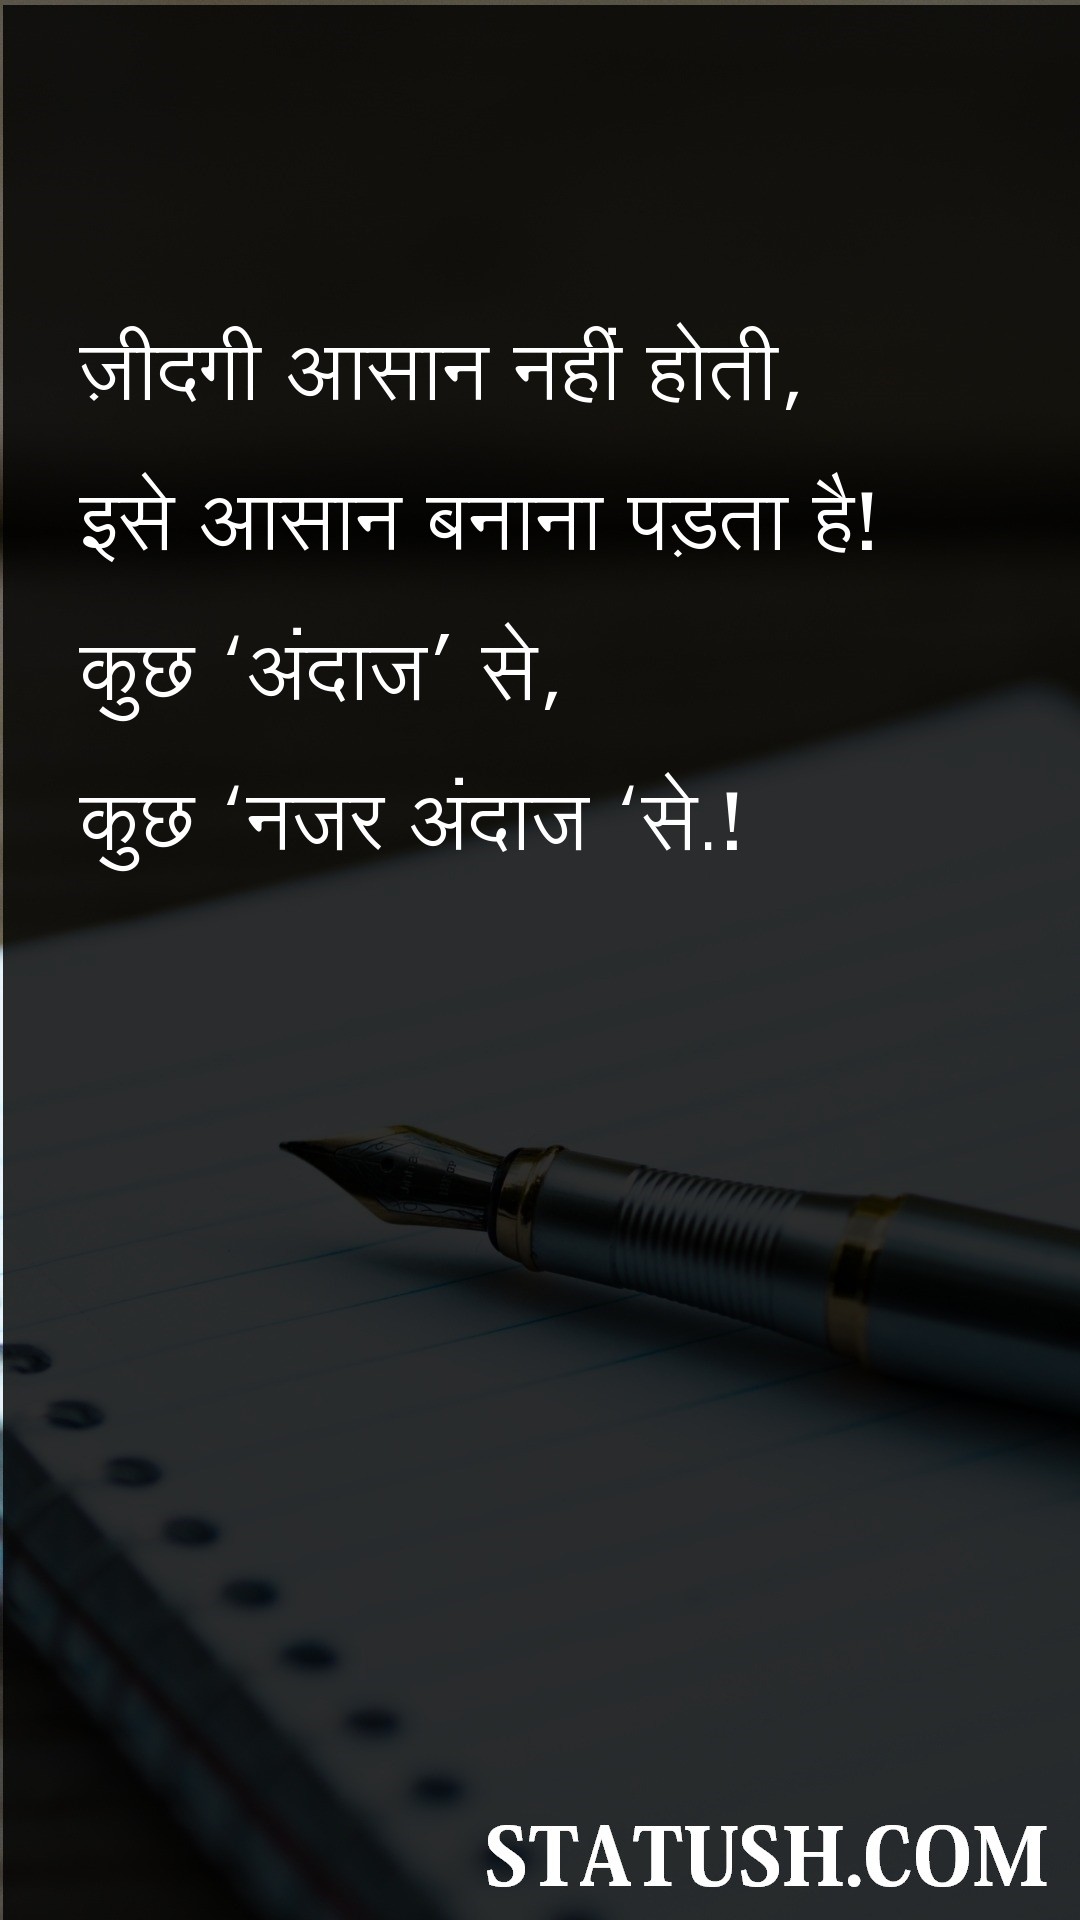 ज़ीदगी आसान नहीं होती,
इसे आसान बनाना पड़ता है!
कुछ ‘अंदाज’ से,
कुछ ‘नजर अंदाज ‘से.!
STATUSH.COM